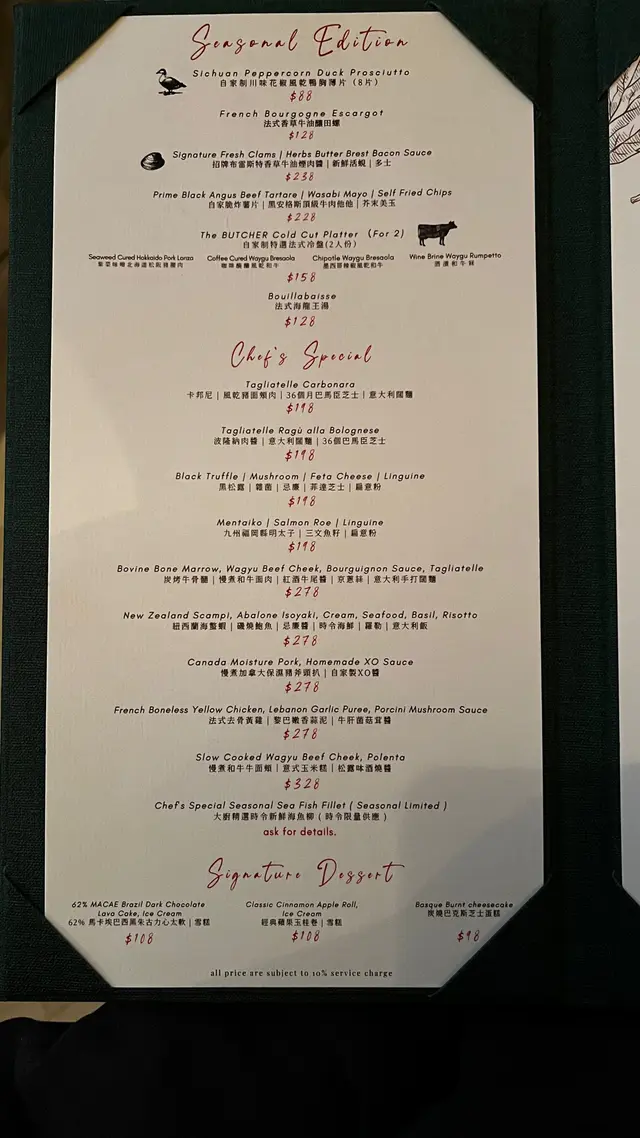 Seasonal Edition
Sichuan Peppercorn Duck Prosciutto
自家制川味花椒風乾鴨胸薄片（8片）
$88
French Bourgogne Escargot
法式香草牛油釀田螺
$128
Signature Fresh Clams | Herbs Butter Brest Bacon Sauce
招牌布雷斯特香草牛油煙肉醬 | 新鮮活蜆 | 多士
$238
Prime Black Angus Beef Tartare | Wasabi Mayo | Self Fried Chips
自家脆炸薯片 | 黑安格斯頂級牛肉他他 | 芥末美玉
$228
The BUTCHER Cold Cut Platter （For 2）
自家制特選法式冷盤(2人份)
Seaweed Cured Hokkaido Pork Lonza Coffee Cured Waygu Bresaola Chipotle Waygu Bresaola Wine Brine Waygu Rumpetto
$158
Bouillabaisse
法式海龍王湯
$128
Chef's Special
Tagliatelle Carbonara
卡邦尼 | 風乾豬面頰肉 | 36個月巴馬臣芝士 | 意大利闊麵
$198
Tagliatelle Ragù alla Bolognese
波隆納肉醬 | 意大利闊麵 | 36個巴馬臣芝士
$198
Black Truffle | Mushroom | Feta Cheese | Linguine
黑松露 | 雜菌 | 忌廉 | 菲達芝士 | 扁意粉
$198
Mentaiko | Salmon Roe | Linguine
九州福岡縣明太子 | 三文魚籽 | 扁意粉
$198
Bovine Bone Marrow, Wagyu Beef Cheek, Bourguignon Sauce, Tagliatelle
炭烤牛骨髓 | 慢煮和牛面肉 | 紅酒牛尾醬 | 京蔥絲 | 意大利手打闊麵
$278
New Zealand Scampi, Abalone Isoyaki, Cream, Seafood, Basil, Risotto
紐西蘭海螯蝦 | 磯燒鮑魚 | 忌廉醬 | 時令海鮮 | 羅勒 | 意大利飯
$278
Canada Moisture Pork, Homemade XO Sauce
慢煮加拿大保濕豬斧頭扒 | 自家製XO醬
$278
French Boneless Yellow Chicken, Lebanon Garlic Puree, Porcini Mushroom Sauce
法式去骨黃雞 | 黎巴嫩香蒜泥 | 牛肝菌菇茸醬
$278
Slow Cooked Wagyu Beef Cheek, Polenta
慢煮和牛牛面頰 | 意式玉米糕 | 松露砵酒燒醬
$328
Chef's Special Seasonal Sea Fish Fillet ( Seasonal Limited )
大廚精選時令新鮮海魚柳 ( 時令限量供應 )
ask for details.
Signature Dessert
62% MACAE Brazil Dark Chocolate
Lava Cake, Ice Cream
62% 馬卡埃巴西黑朱古力心太軟 | 雪糕
$108
Classic Cinnamon Apple Roll,
Ice Cream
經典蘋果玉桂卷 | 雪糕
$108
Basque Burnt cheesecake
炭燒巴克斯芝士蛋糕
$98
all price are subject to 10% service charge